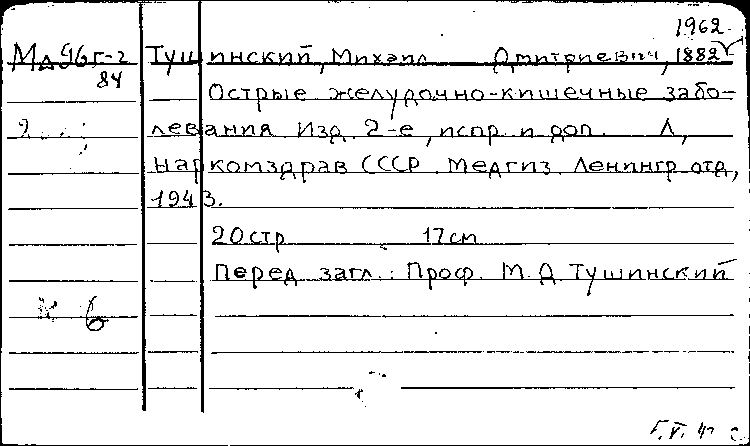 1962.
Мд96г-2 Тушинский, Михаил Дмитриевич, 1882
84
Острые желудочно-кишечные забо-
левания Изд. 2-е, испр и доп. Л,
Наркомздрав СССР. Медгиз. Ленингр отд,
1943.
20стр 17см
Перед загл.: Проф. М. Д. Тушинский